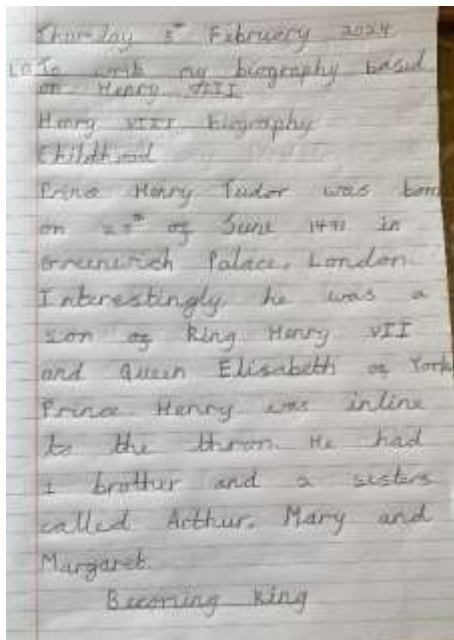 Thursday 8th February 2024
LO To write my biography based
on Henry VIII
Henry VIII biography
Childhood
Prince Henry Tudor was born
on 28th of June 1491 in
Greenwich Palace, London.
Interestingly, he was a
son of king Henry VII
and Queen Elisabeth of York
Prince Henry was inline
to the thron. He had
1 brother and 2 sisters
called Arthur, Mary and
Margaret.
Becoming king